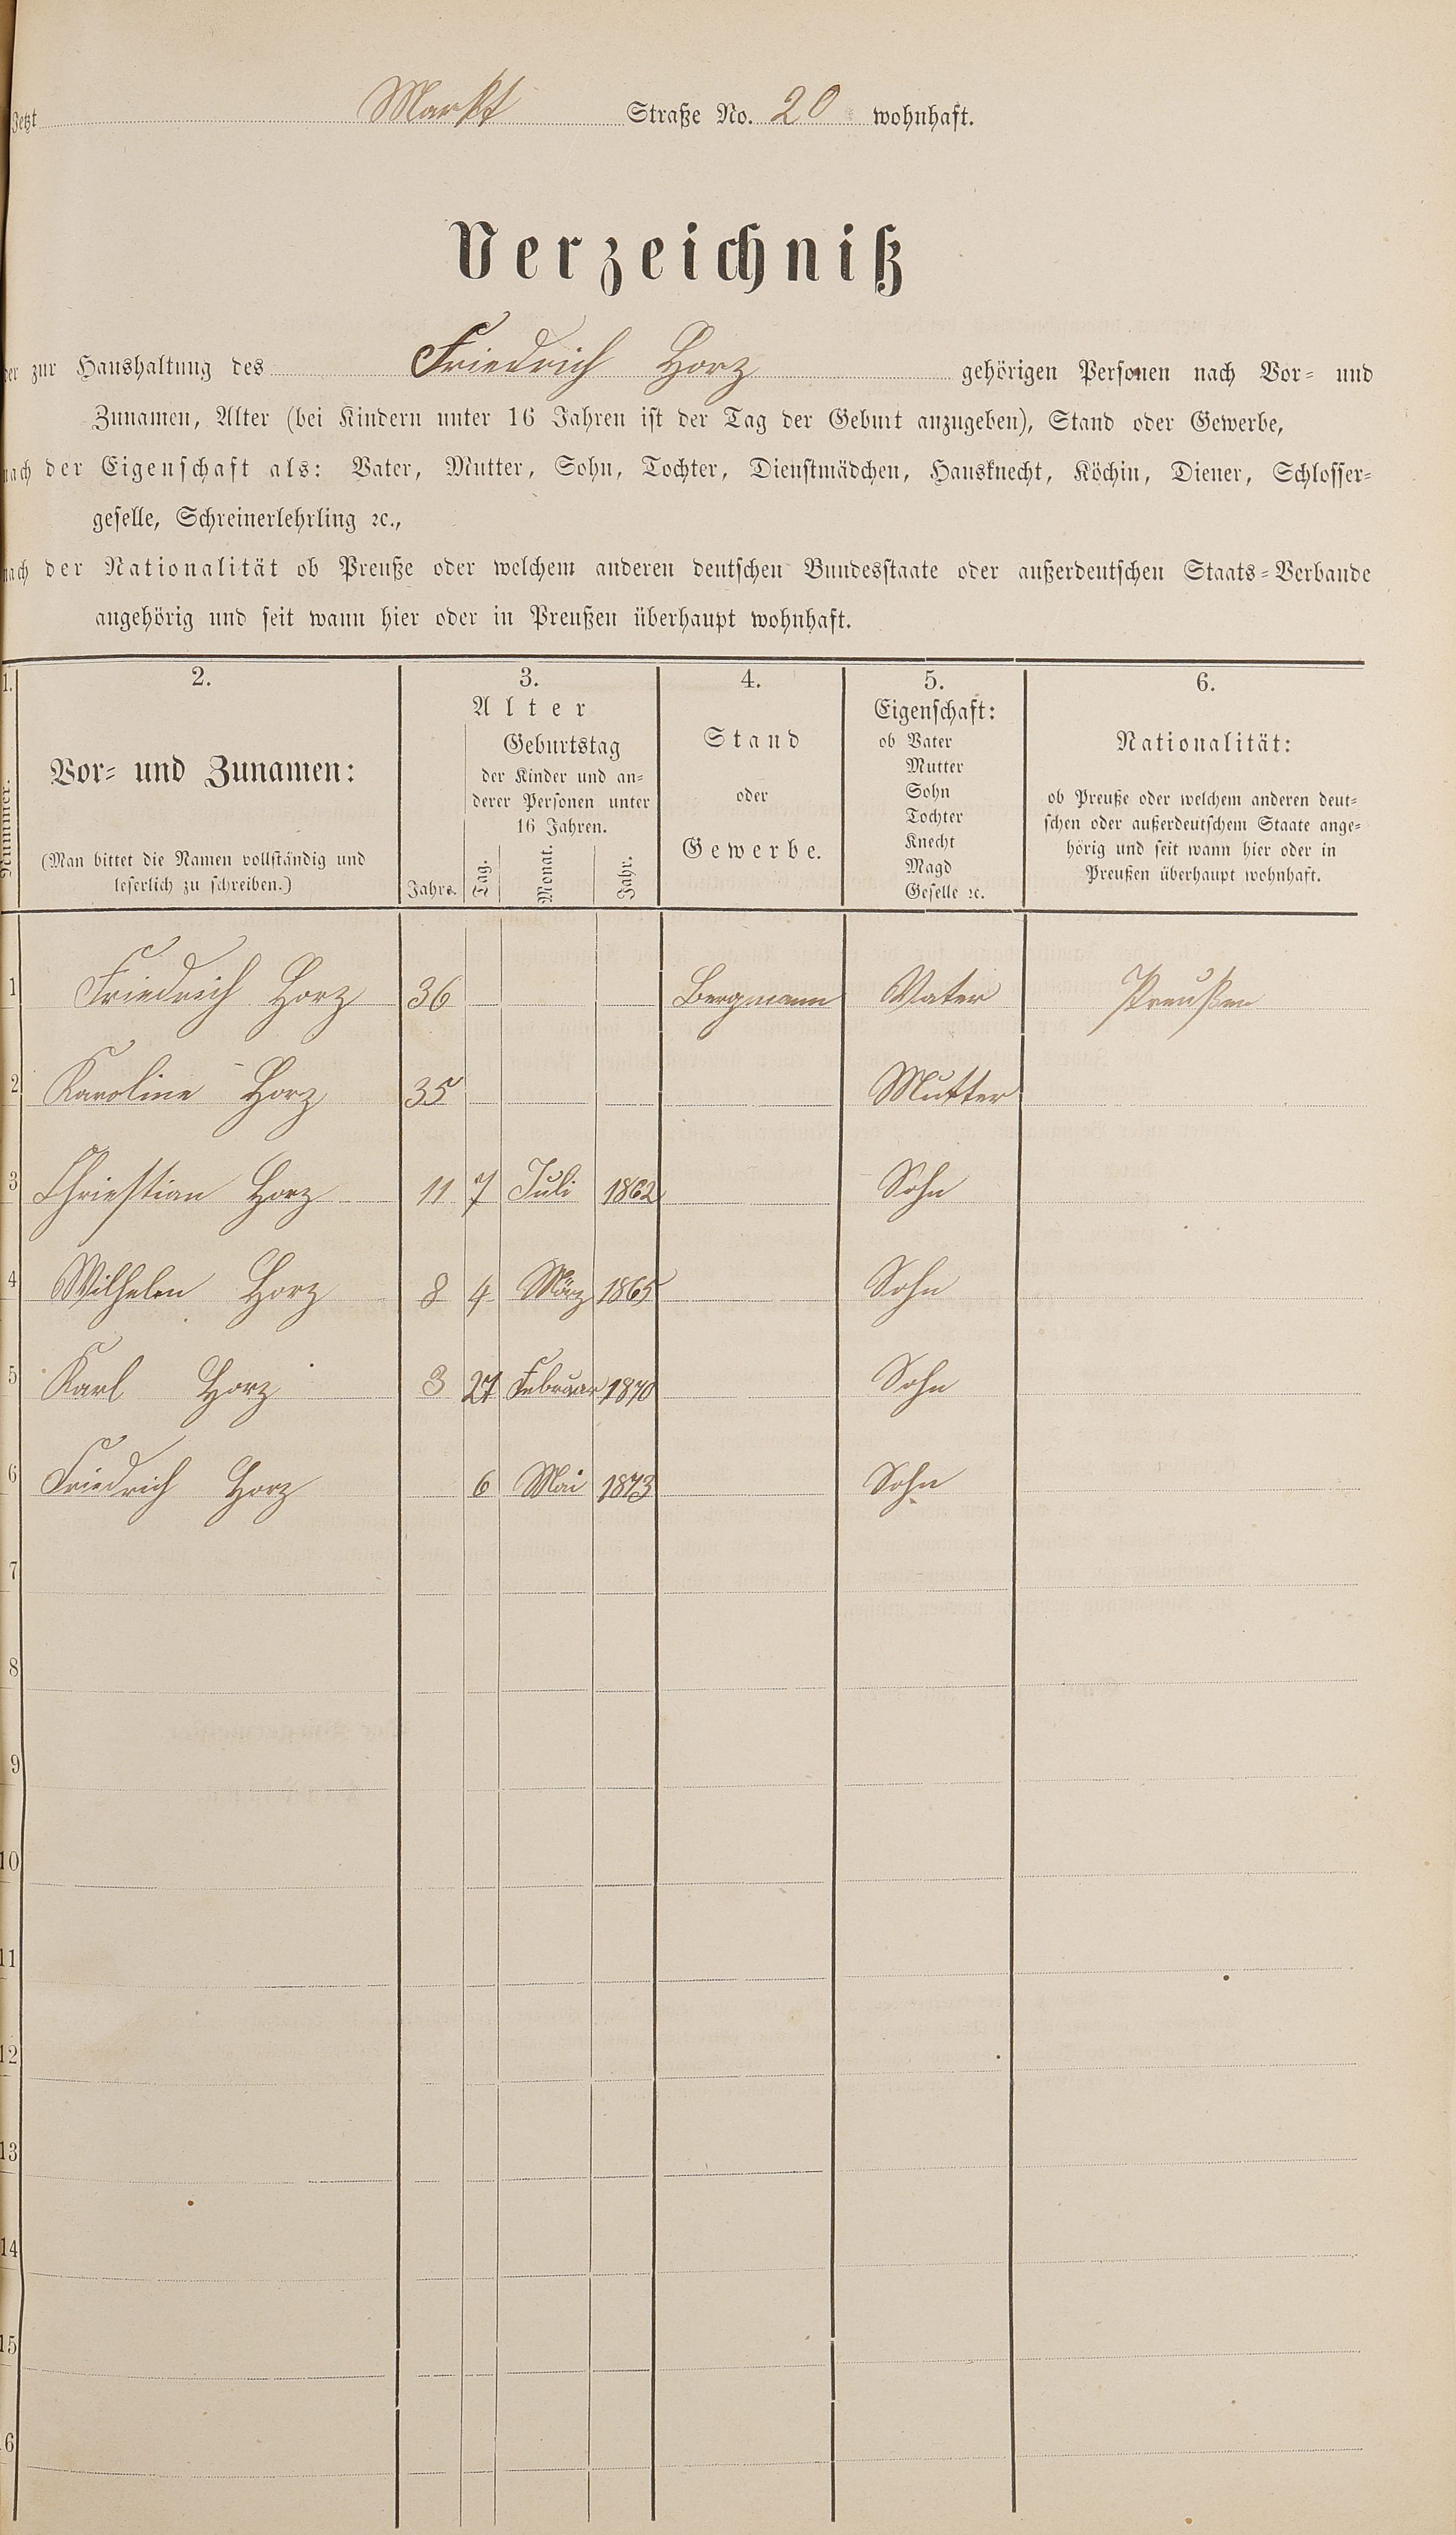 Jetzt Markt Straße No. 20 wohnhaft.
Verzeichniß
der zur Haushaltung des Friedrich Horz gehörigen Personen nach Vor- und
Zunamen, Alter (bei Kindern unter 16 Jahren ist der Tag der Geburt anzugeben), Stand oder Gewerbe,
nach der Eigenschaft als: Vater, Mutter, Sohn, Tochter, Dienstmädchen, Hausknecht, Köchin, Diener, Schlosser-
geselle, Schreinerlehrling ꝛc.,
nach der Nationalität ob Preuße oder welchem anderen deutschen Bundesstaate oder außerdeutschen Staats-Verbande
angehörig und seit wann hier oder in Preußen überhaupt wohnhaft.
1.
Nummer.
2.
Vor- und Zunamen:
(Man bittet die Namen vollständig und
leserlich zu schreiben.)
3.
Alter
Jahre.
Geburtstag
der Kinder und an-
derer Personen unter
16 Jahren.
Tag.
Monat.
Jahr.
4.
Stand
oder
Gewerbe.
5.
Eigenschaft:
ob Vater
Mutter
Sohn
Tochter
Knecht
Magd
Geselle ꝛc.
6.
Nationalität:
ob Preuße oder welchem anderen deut-
schen oder außerdeutschem Staate ange-
hörig und seit wann hier oder in
Preußen überhaupt wohnhaft.
1 Friedrich Horz 36 Bergmann Vater Preußen
2 Karoline Horz 35 Mutter
3 Chriestian Horz 11 7 Juli 1862 Sohn
4 Wilhelm Horz 8 4 März 1865 Sohn
5 Karl Horz 3 27 Februar 1870 Sohn
6 Friedrich Horz 6 Mai 1873 Sohn
7
8
9
10
11
12
13
14
15
6